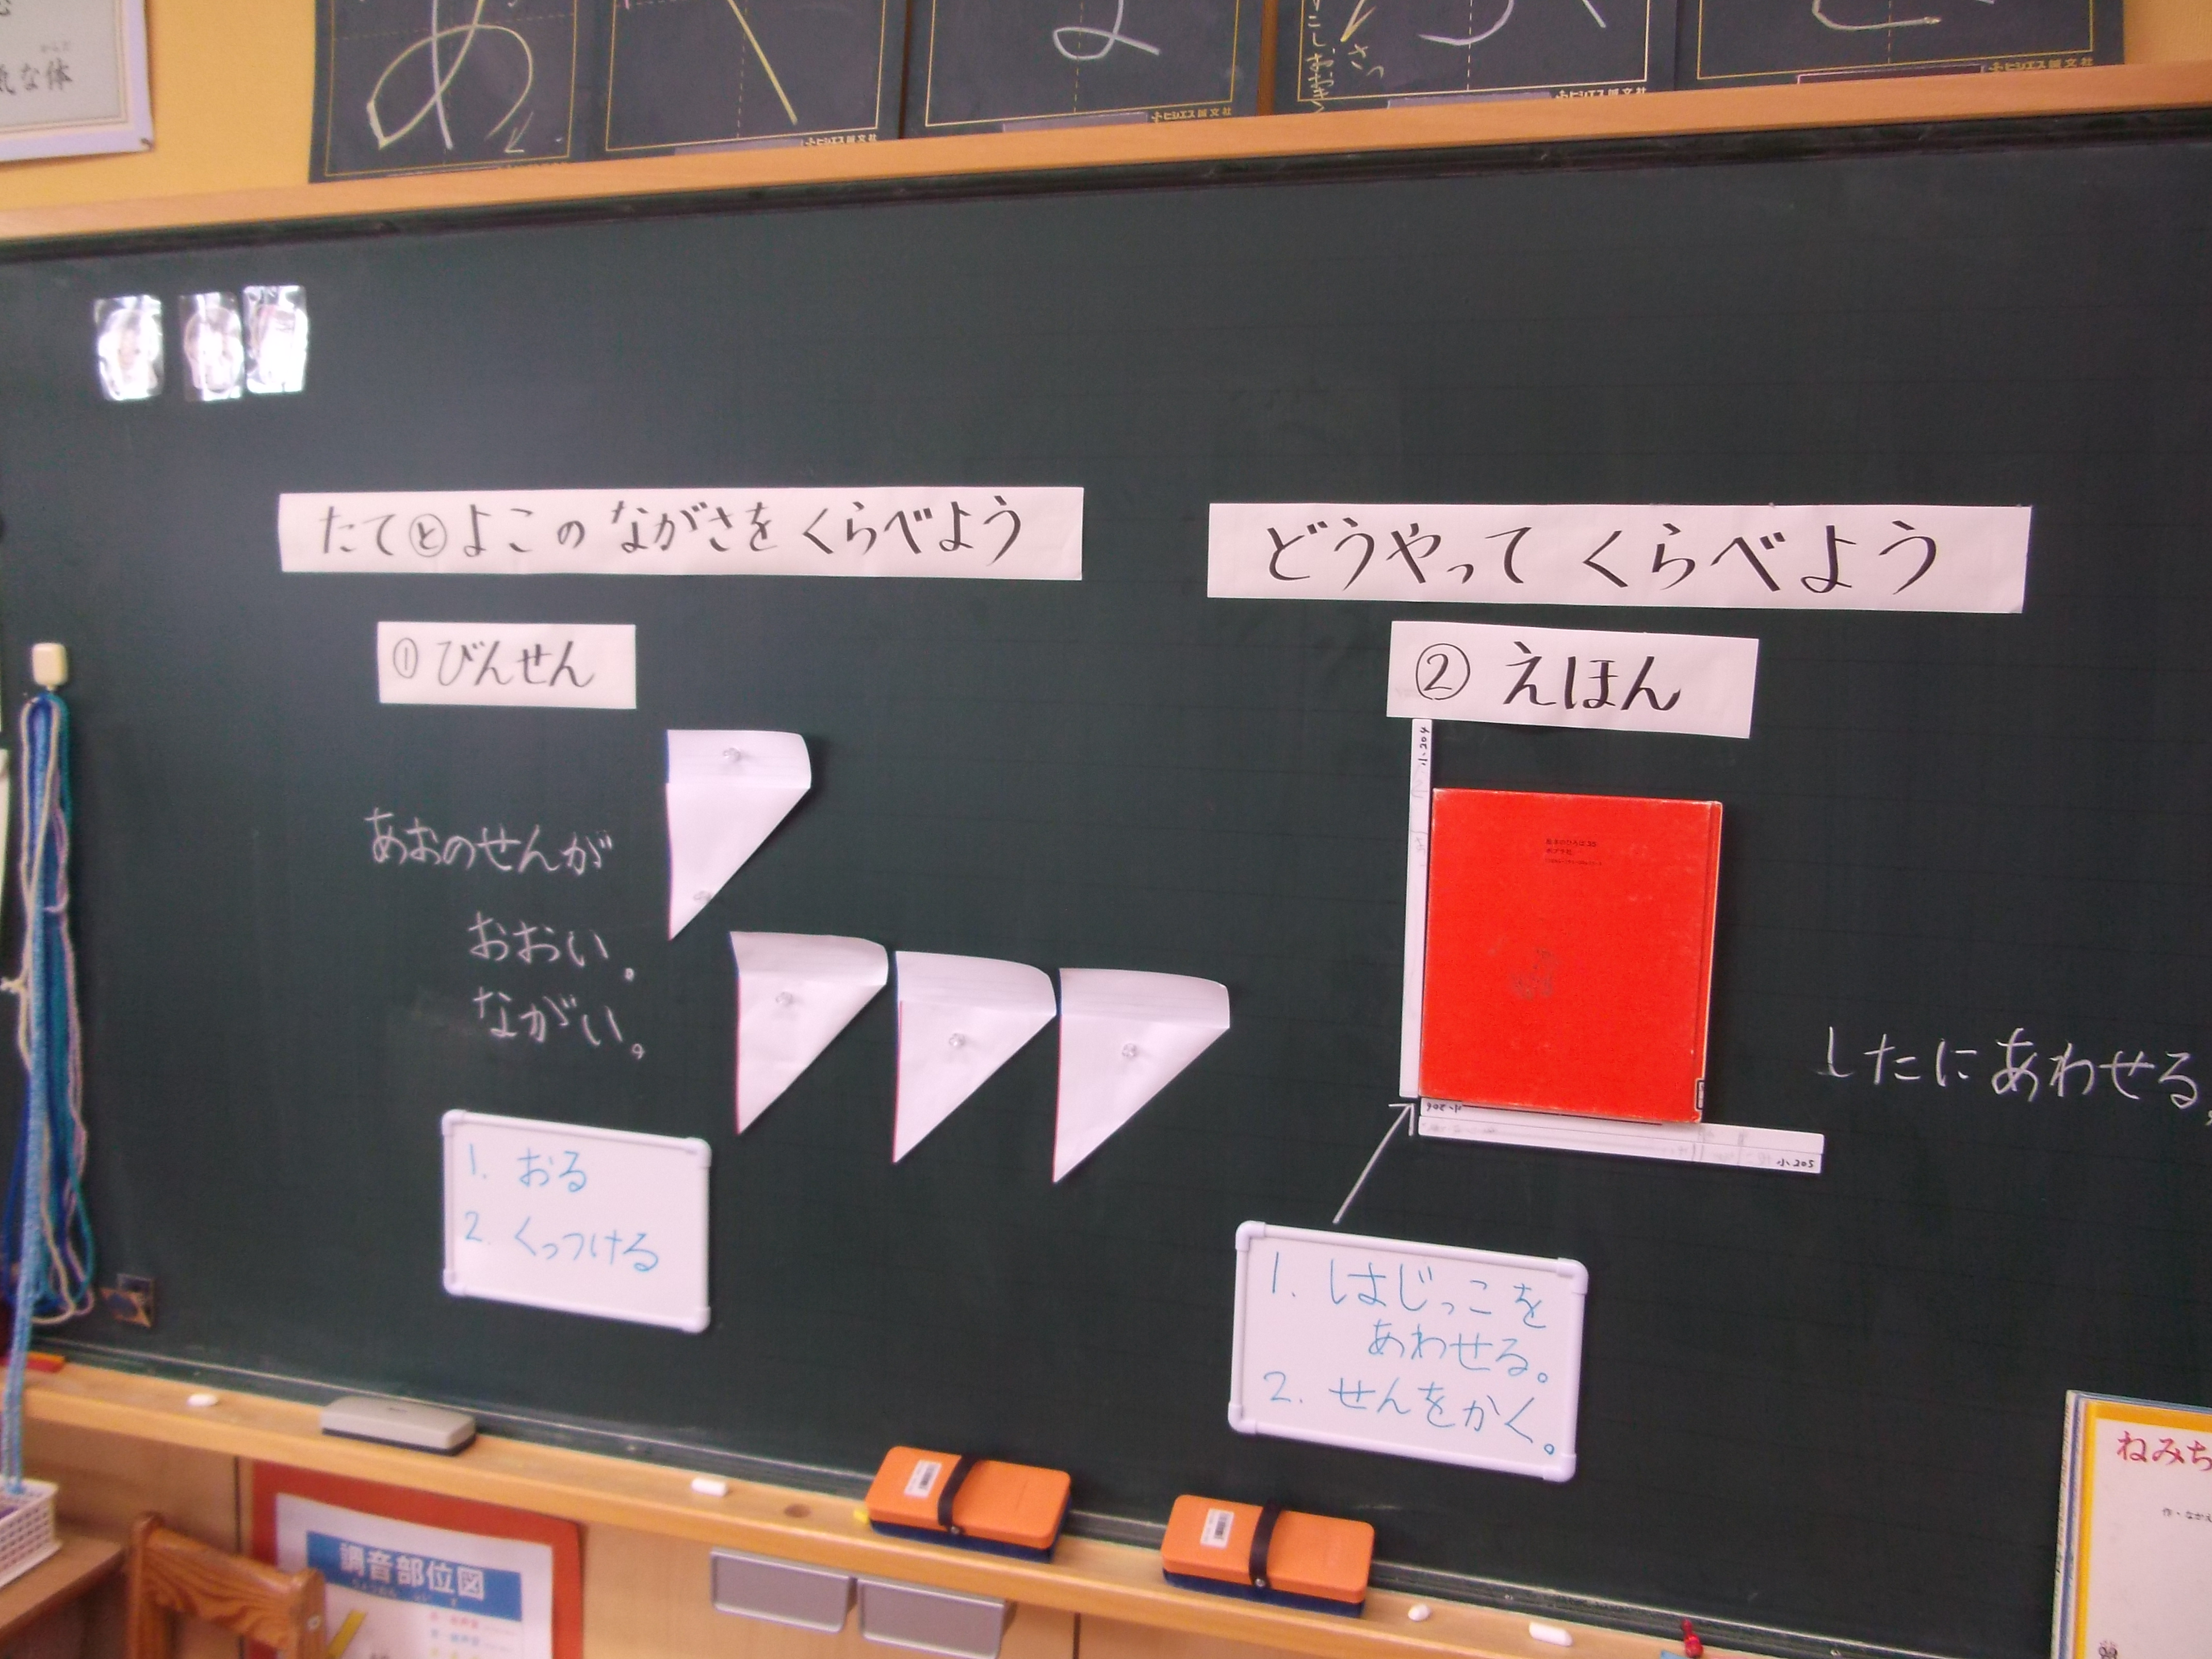 気な体
あ
く
よ
たてⓔよこの ながさを くらべよう
どうやって くらべよう
① びんせん
② えほん
あおのせんが
おおい。
ながい。
1. おる
2. くっつける
小205
したに あわせる。
1. はじっこを
あわせる。
2. せんをかく。
調音部位図
ねみち